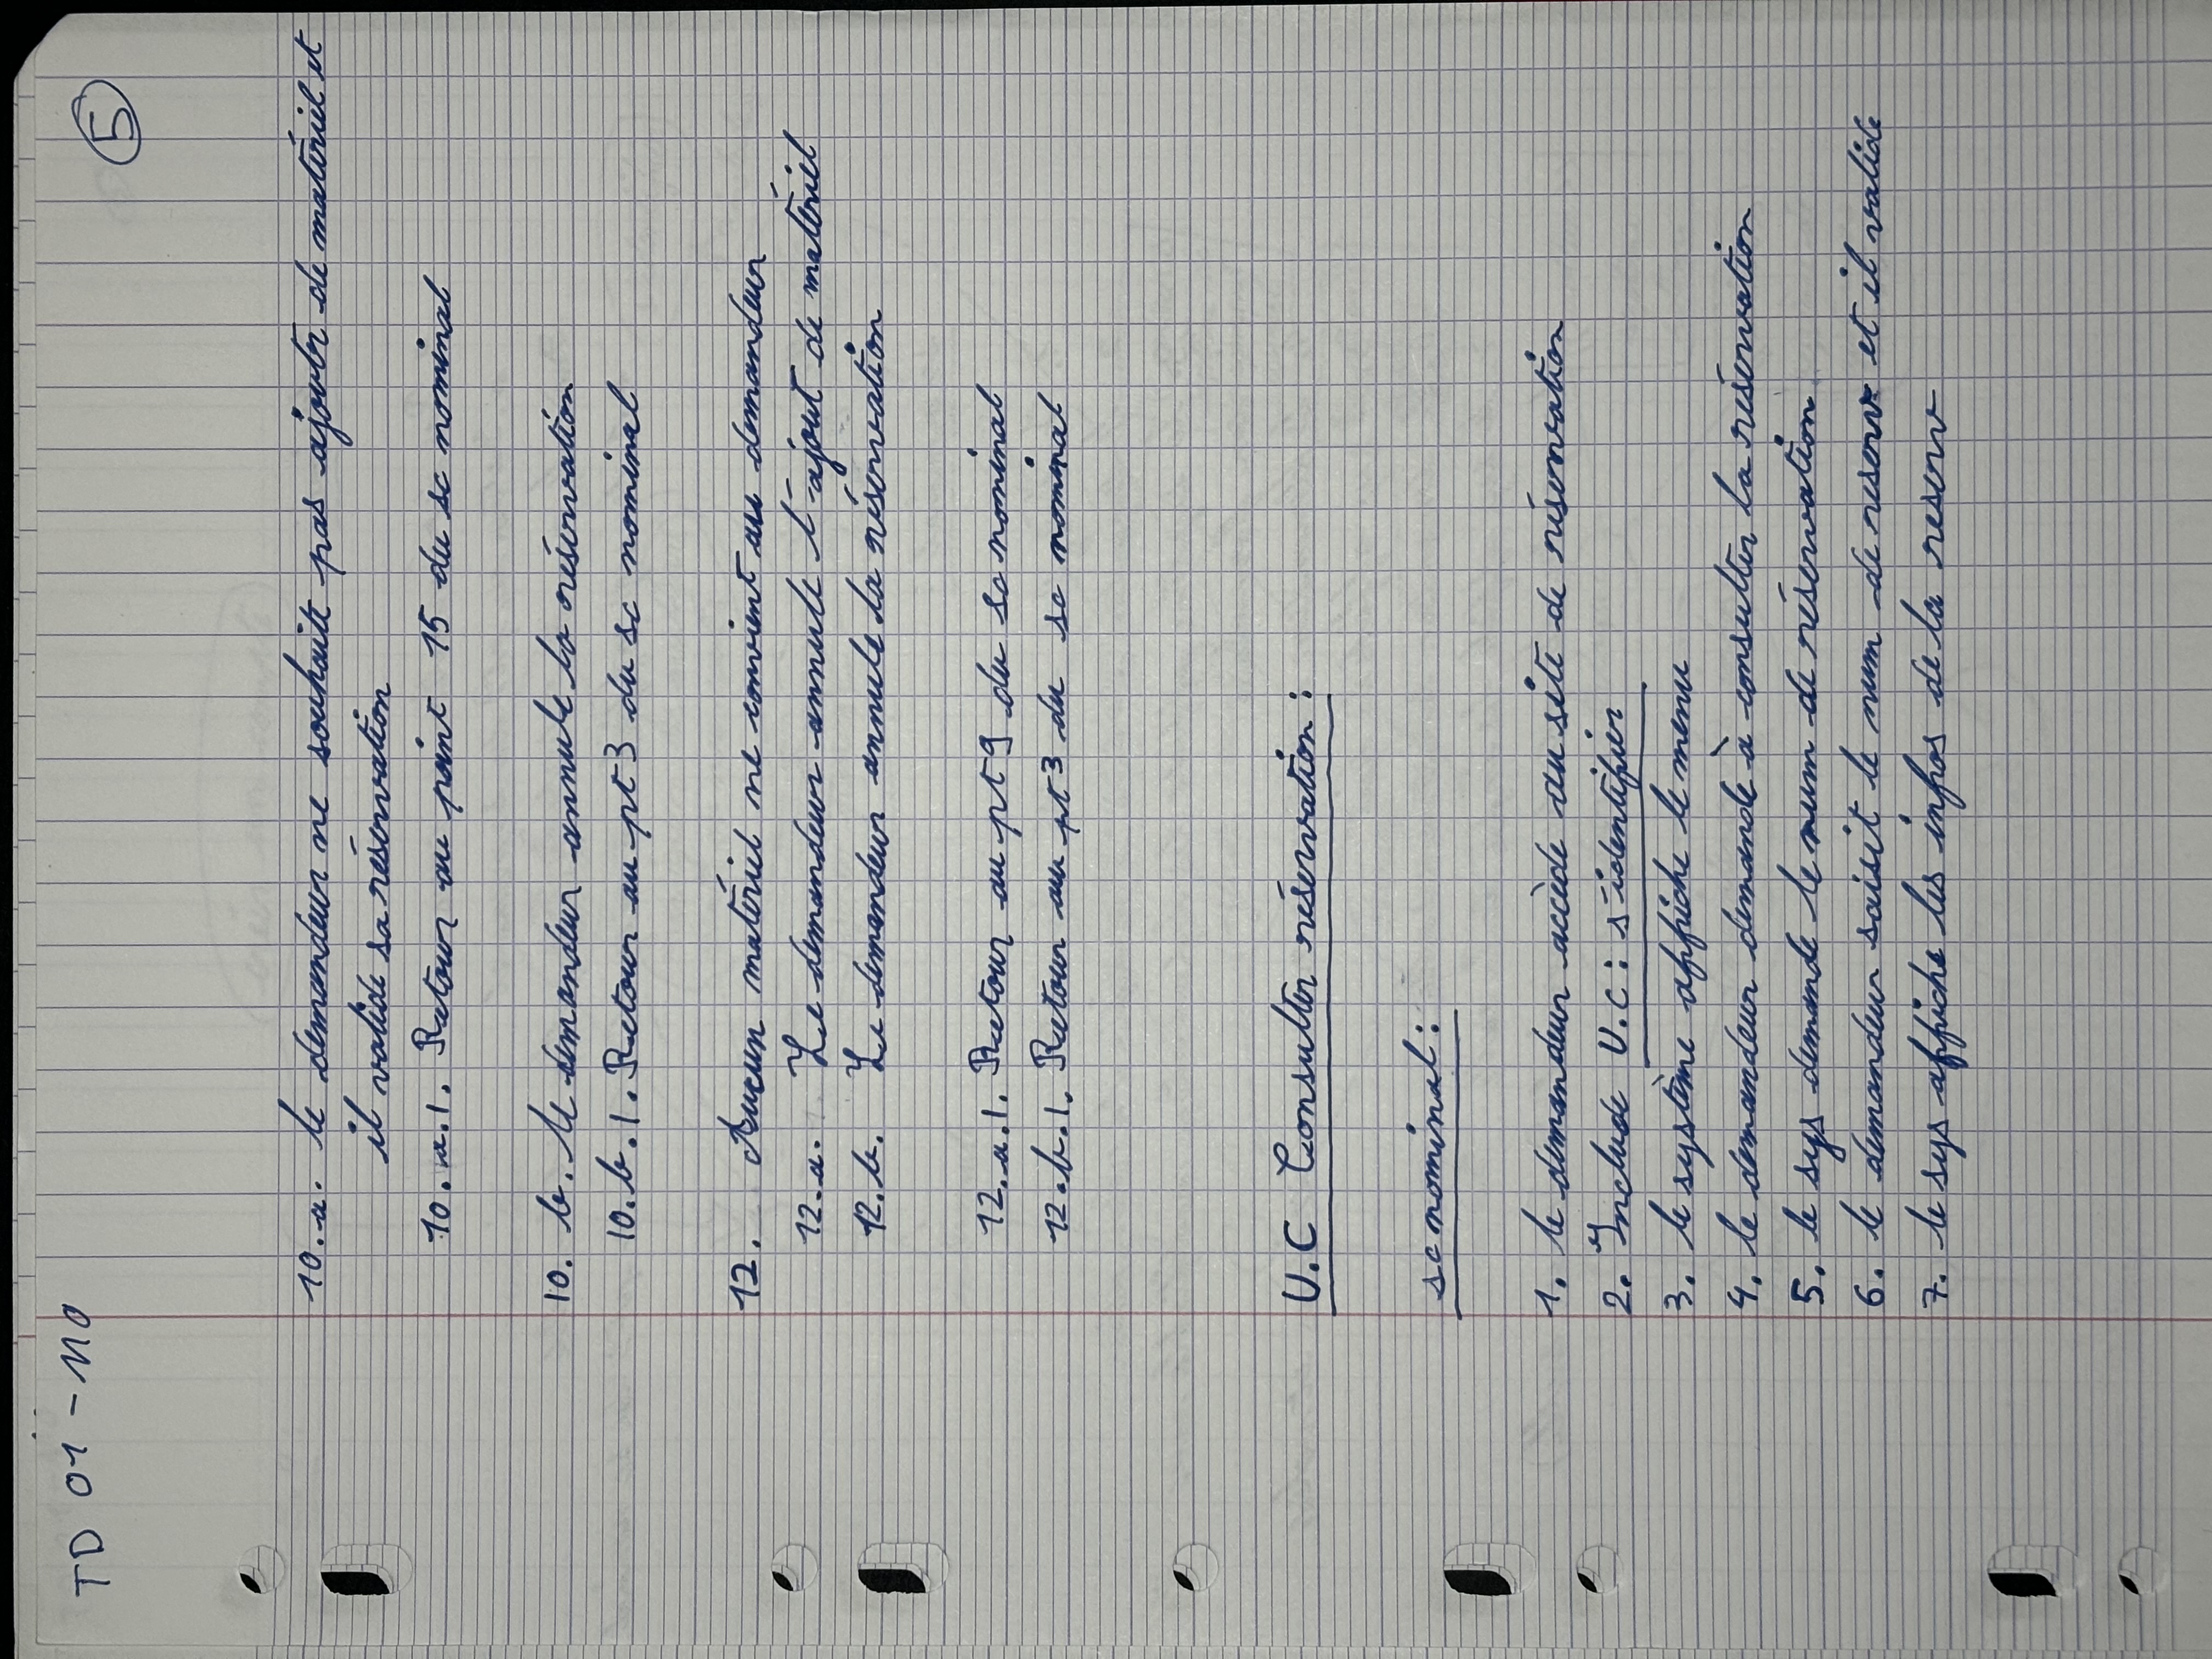 TD 01 - 110
5
10.a. le demandeur ne souhaite pas ajouter de matériel et
il valide sa réservation
10.a.1. Retour au point 15 du sc nominal
10. b. le demandeur annule la réservation
10.b.1. Retour au pt 3 du sc nominal
12. Aucun matériel ne convient au demandeur
12.a. Le demandeur annule l'ajout de matériel
12.b. Le demandeur annule la réservation
12.a.1. Retour au pt 9 du sc nominal
12.b.1. Retour au pt 3 du sc nominal
U.C Consulter réservation :
sc nominal :
1. le demandeur accède au site de réservation
2. Include U.C : s'identifier
3. le système affiche le menu
4. le demandeur demande à consulter la réservation
5. le sys demande le num de réservation
6. le demandeur saisit le num de reserv et il valide
7. le sys affiche les infos de la reserv